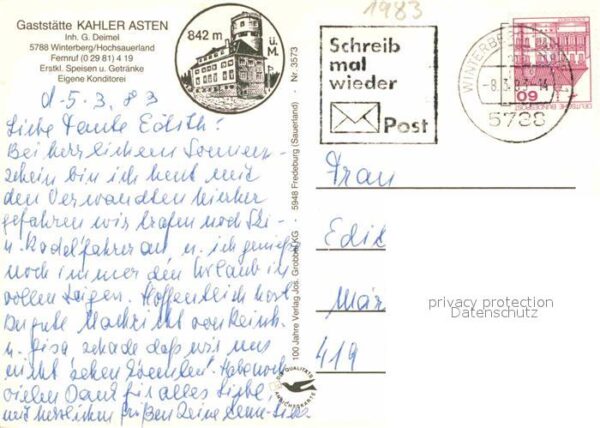 Gaststätte KAHLER ASTEN
Inh. G. Deimel
5788 Winterberg/Hochsauerland
Fernruf (0 29 81) 4 19
Erstkl. Speisen u. Getränke
Eigene Konditorei
842 m ü. M.
Nr. 3573
5948 Fredeburg (Sauerland)
100 Jahre Verlag Jos. Grobbel KG
QUALITÄTS
ANSICHTSKARTE
1983
Schreib
mal
wieder
Post
WINTERBE
-8.3.83-14
5788
60
DEUTSCHE BUNDESPOST
d. 5.3.83
Liebe Tante Edith!
Bei herrlichem Sonnen-
schein bin ich heut mit
den Verwandten hierher
gefahren wir trafen noch Ski-
u. Rodelfahrer an, u. ich genieße
noch immer den Urlaub in
vollen Zügen. Hoffentlich hast
Du gute Nachricht von
u. Gisa schade daß wir uns
nicht sehen konnten. Habe noch
vielen Dank für alles Liebe,
mit herzlichen Grüßen Deine
Frau
Edit
Mär
419
privacy protection
Datenschutz